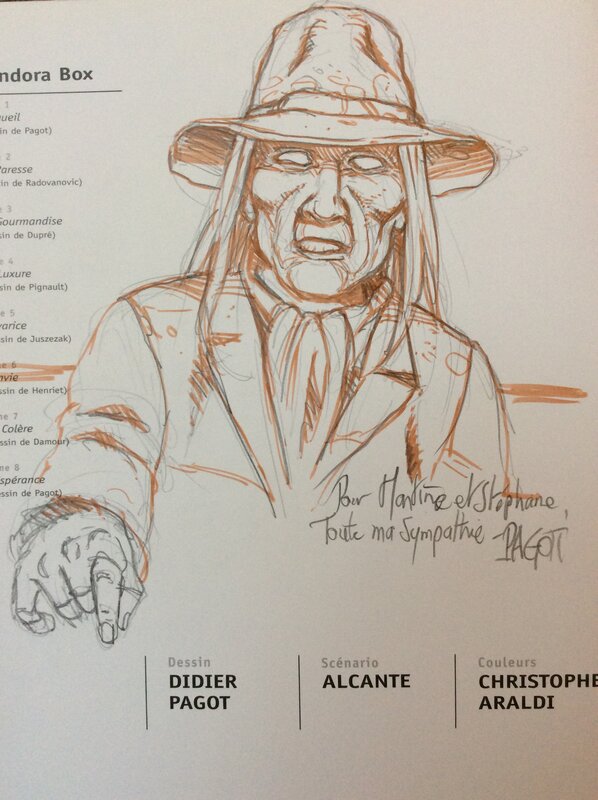 ndora Box
1
ueil
sin de Pagot)
e 2
Paresse
sin de Radovanovic)
e 3
Gourmandise
ssin de Dupré)
e 4
Luxure
sin de Pignault)
e 5
varice
sin de Juszezak)
me 6
nvie
essin de Henriet)
me 7
Colère
essin de Damour)
me 8
spérance
essin de Pagot)
Pour Martine et Stéphane,
Toute ma sympathie PAGOT
Dessin
DIDIER
PAGOT
Scénario
ALCANTE
Couleurs
CHRISTOPHE
ARALDI